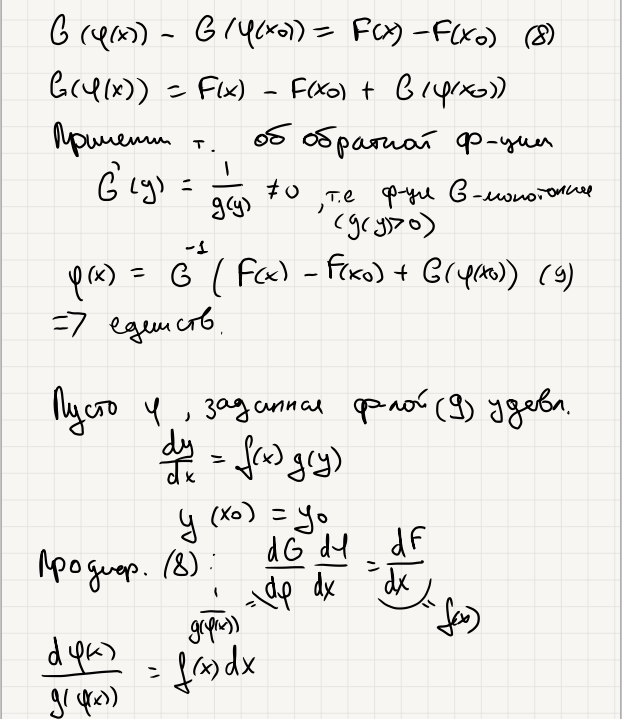 G(φ(x)) - G(φ(x₀)) = F(x) - F(x₀) (8)
G(φ(x)) = F(x) - F(x₀) + G(φ(x₀))
Применим т. об обратной ф-ции
G'(y) = 1/g(y) ≠ 0, т.е ф-ция G - монотонна
(g(y)>0)
φ(x) = G⁻¹(F(x) - F(x₀) + G(φ(x₀)) (9)
=> единств.
Пусть φ, заданная ф-лой (9) удовл.
dy/dx = f(x) g(y)
y(x₀) = y₀
Продиф. (8): dG/dφ dφ/dx = dF/dx
1/g(φ(x)) = = f(x)
dφ(x)/g(φ(x)) = f(x) dx